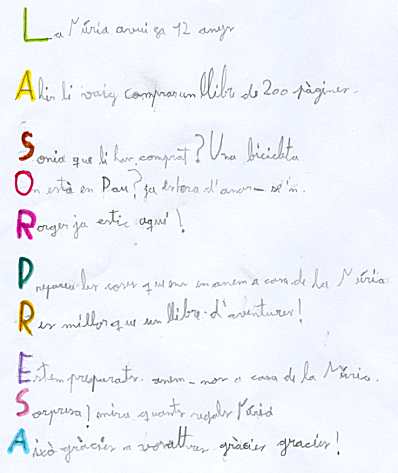 La Núria avui fa 12 anys
Ahir li vaig comprar un llibre de 200 pàgines.
Sonia que li han comprat? Una bicicleta
On està en Pau? ja es hora d'anar-se'n.
Rorger ja estic aquí!
Prepareu les coses que ens en anem a casa de la Núria
Res millor que un llibre d'aventures!
Estem preparats. anem-nos a casa de la Núria.
Sorpresa! mira quants regals Núria
Això gràcies a vosaltres gràcies gracies!